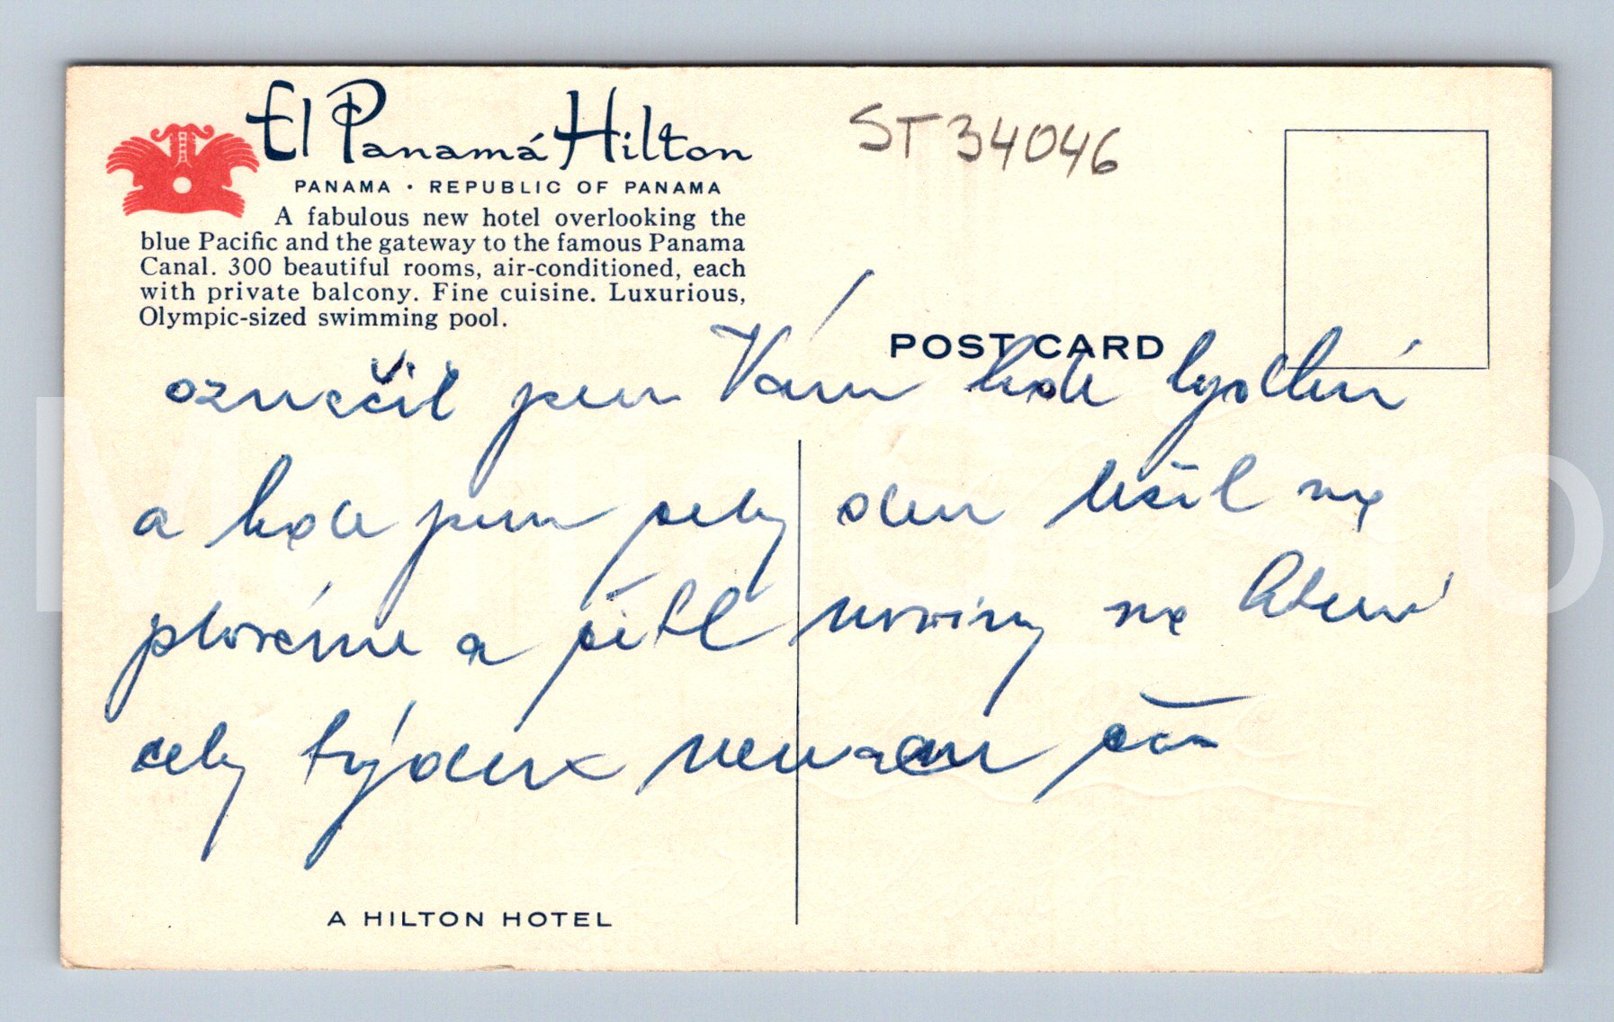 El Panamá Hilton
PANAMA · REPUBLIC OF PANAMA
A fabulous new hotel overlooking the
blue Pacific and the gateway to the famous Panama
Canal. 300 beautiful rooms, air-conditioned, each
with private balcony. Fine cuisine. Luxurious,
Olympic-sized swimming pool.
ST34046
POST CARD
označil jsem Vám kde bydlím
a kde jsem celý den ležel na
a četl noviny na
celý týden nemám
A HILTON HOTEL